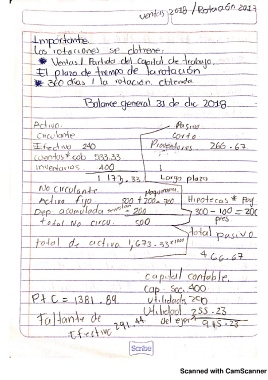 ventas 2018 / Rotación 2017
Importante.
Las rotaciones se obtiene:
* Ventas / Partida del capital de trabajo.
* El plazo de tiempo de la rotación
* 360 dias / la rotación obtenida
Balance general 31 de dic 2018.
Activo. Pasivo
Circulante Corto
Efectivo 240 Proveedores 266.67
cuentas * cob 533.33
inventarios 400
1 173.33 Largo plazo
No circulante
Activo fijo 500 + 200 = 700 Hipotecas * Pag
Dep. acumulada - 200 300 - 100 = 200
total No circu. 500 pres
total pasivo
total de activo 1,673.33 466.67
capital contable.
cap soc. 400
P + C = 1381.89 utilidad 200
Faltante de Utilidad 255.23
Efectivo 291.44 del ejer 915.23
Scribe
Scanned with CamScanner